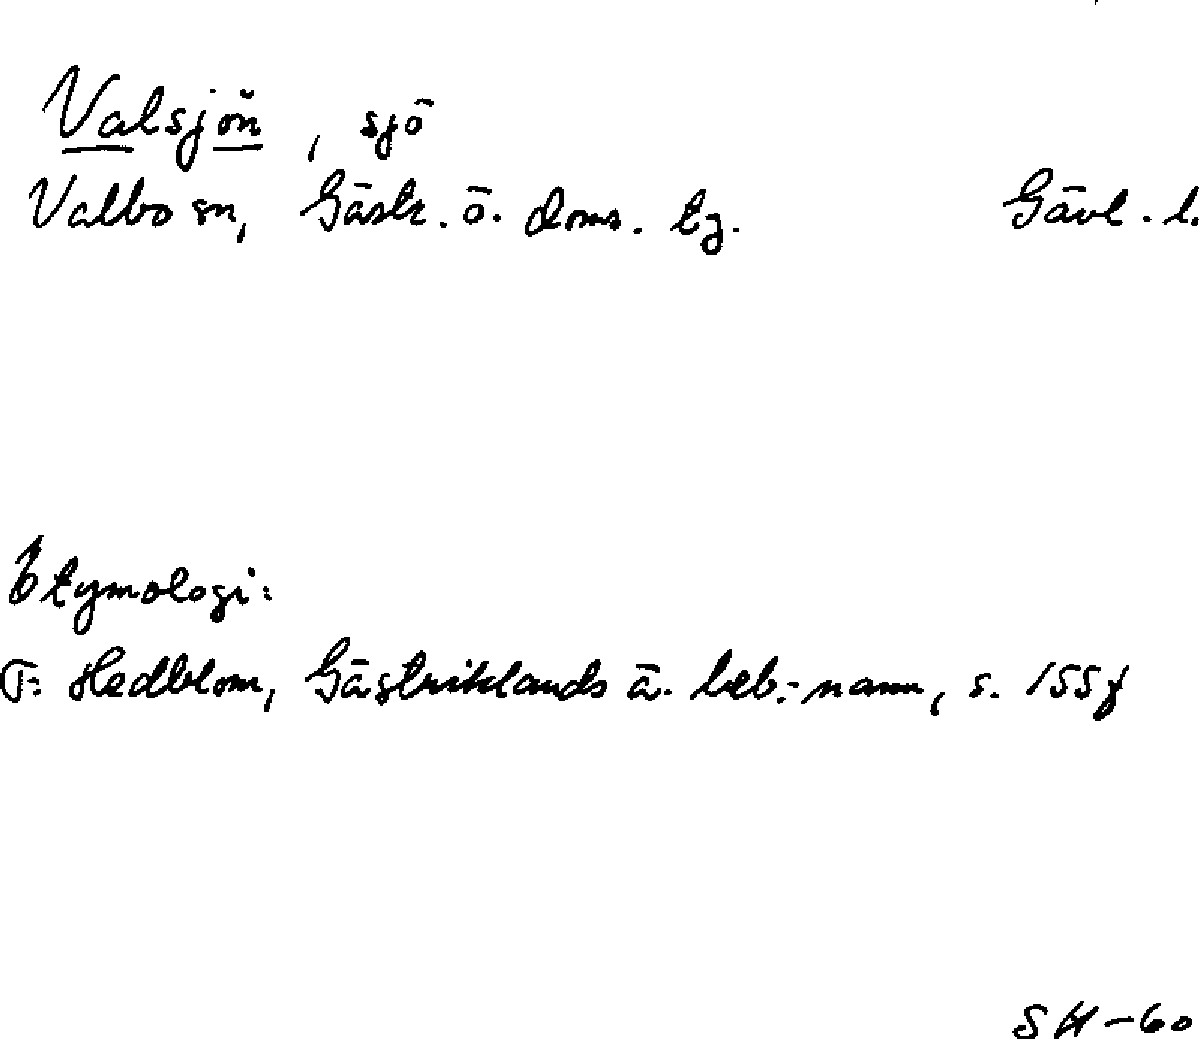 Valsjön, sjö
Valbo sn, Gästr. ö. doms. tg. Gävl. l.
Etymologi:
F. Hedblom, Gästriklands ä. beb.-namn, s. 155f
SH-60